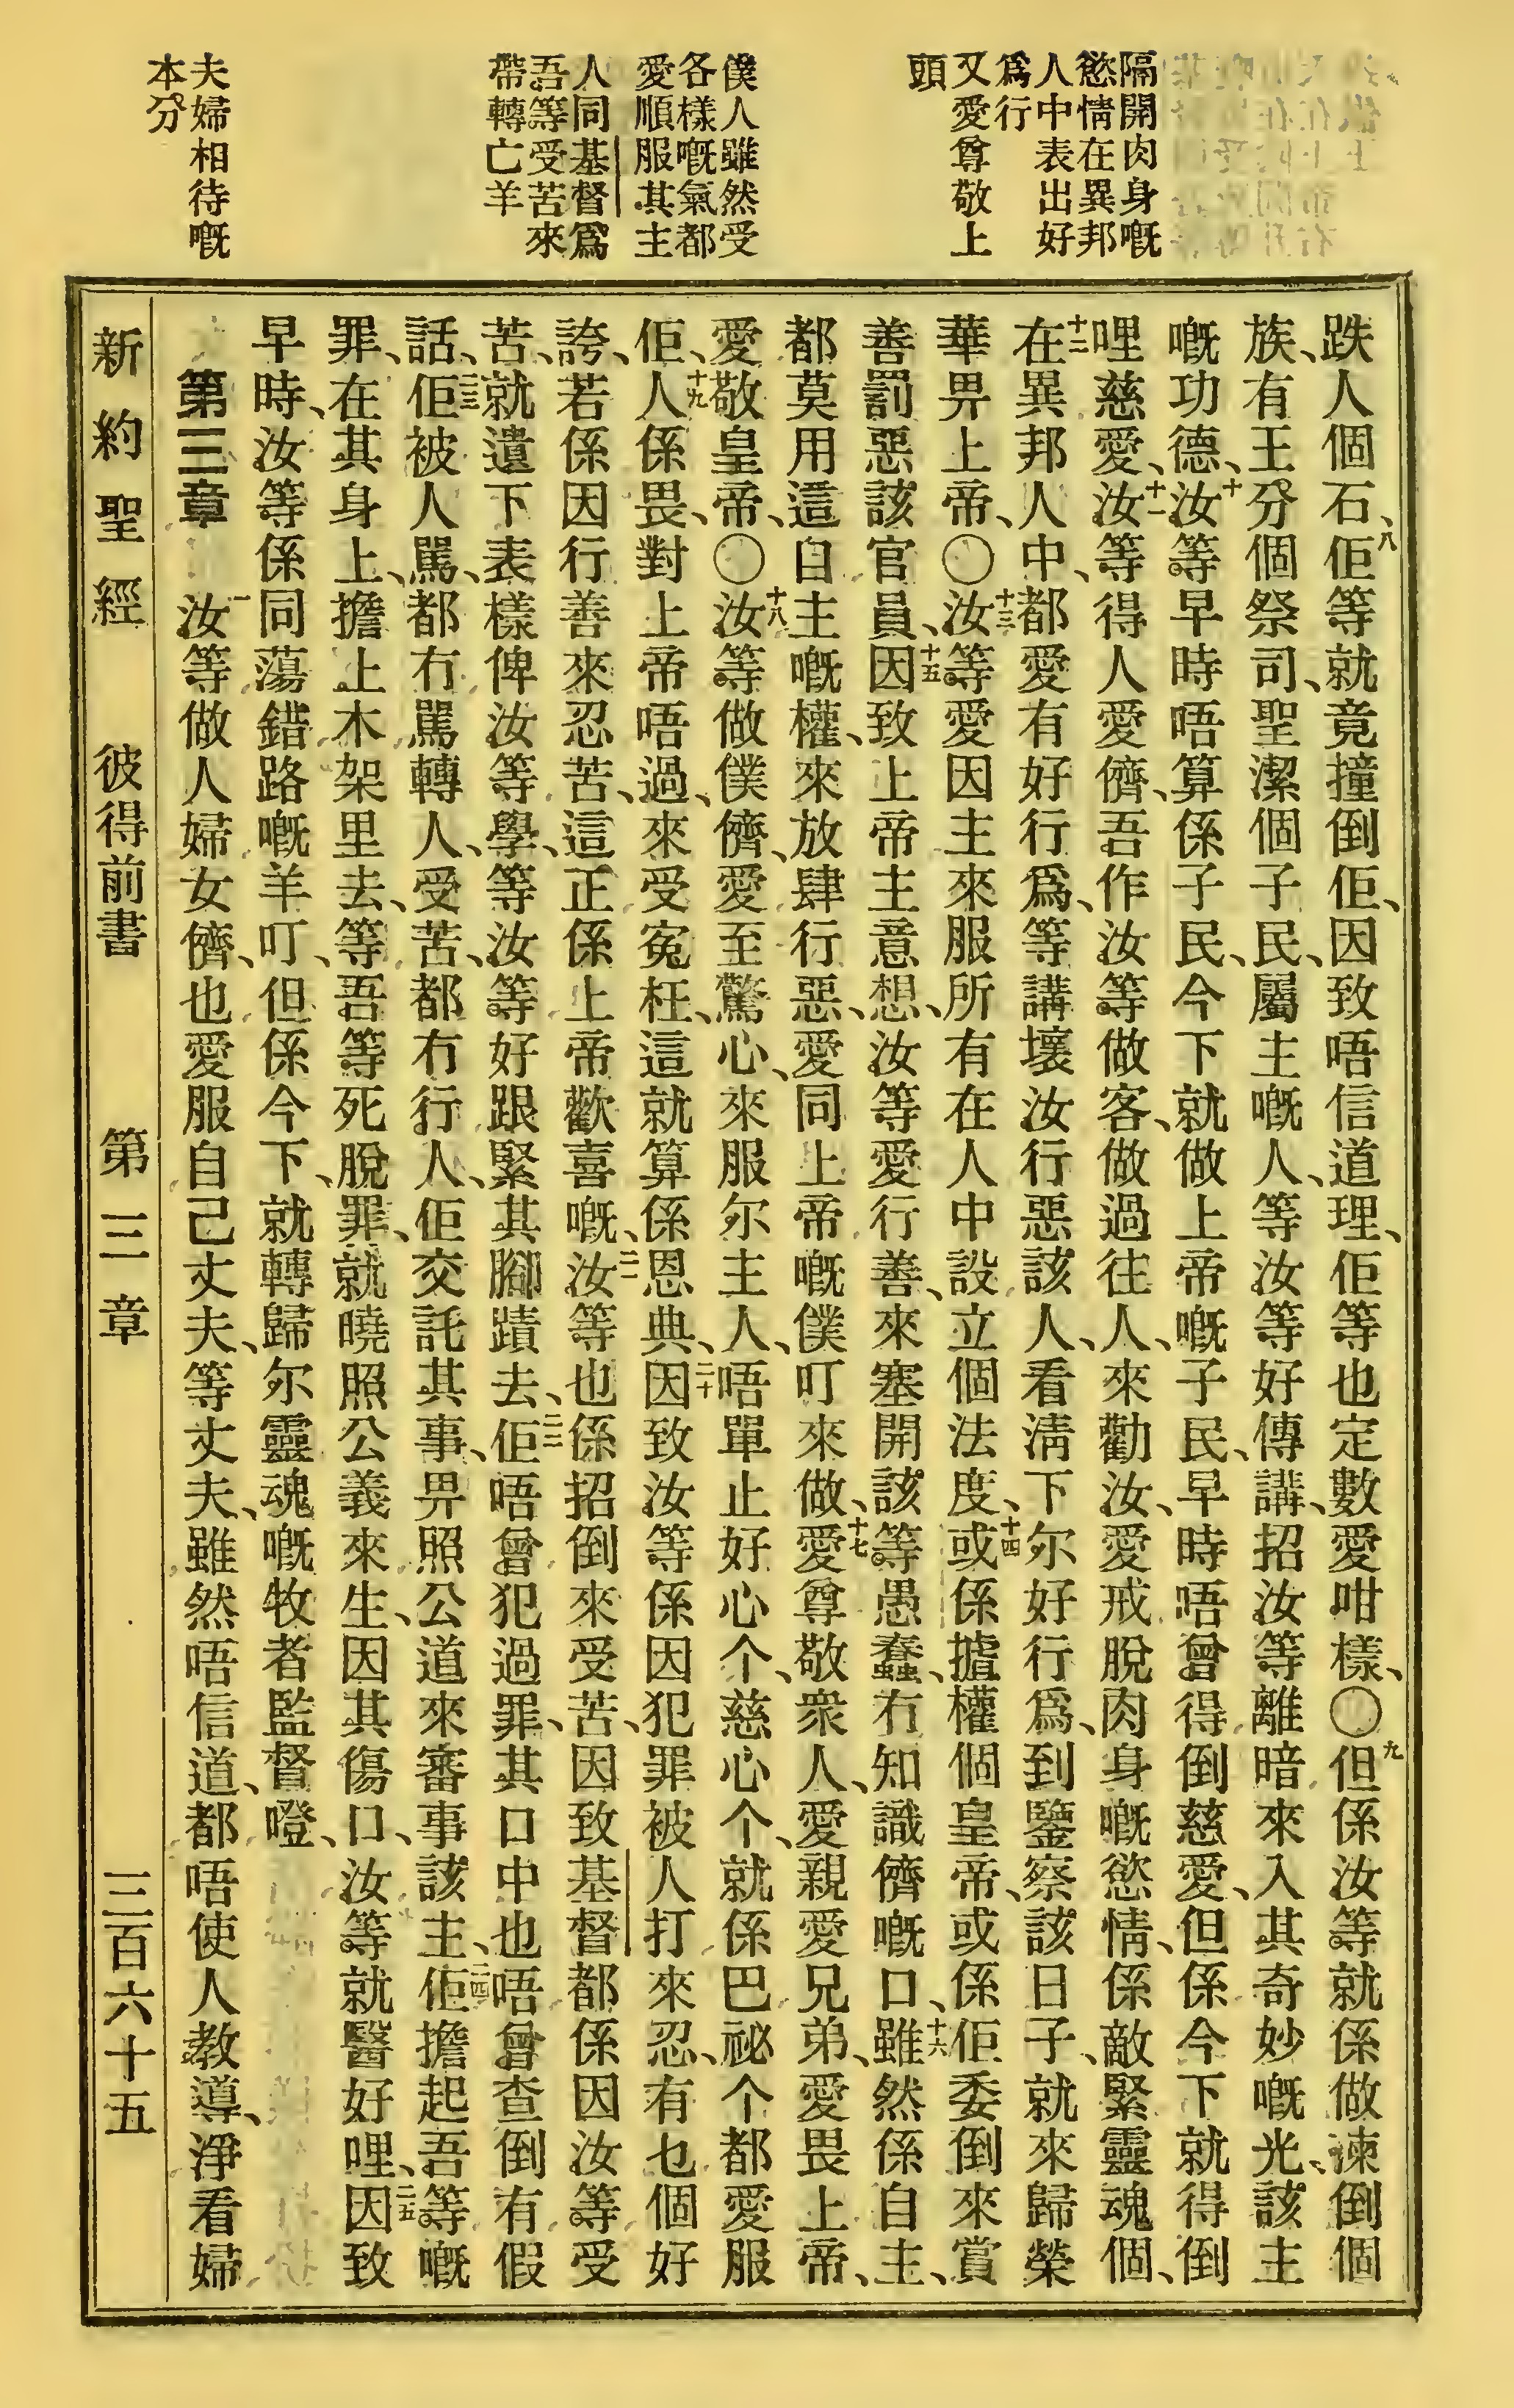 隔開肉身嘅
慾情在異邦
人中表出好
爲行
又愛尊敬上
頭
僕人雖然受
各樣嘅氣都
愛順服其主
人同基督爲
吾等受苦來
帶轉亡羊
夫婦相待嘅
本分
跌人個石、八佢等就竟撞倒佢、因致唔信道理、佢等也定數愛咁樣、〇九但係汝等就係做揀倒個
族、有王分個祭司、聖潔個子民、屬主嘅人、等汝等好傳講、招汝等離暗來入其奇妙嘅光、該主
嘅功德、十汝等早時唔算係子民、今下就做上帝嘅子民、早時唔曾得倒慈愛、但係今下就得倒
哩慈愛、十一汝等得人愛儕、吾作汝等做客、做過往人、來勸汝、愛戒脫肉身嘅慾情、係敵緊靈魂個、
十二在異邦人中、都愛有好行爲、等講壞汝行惡該人、看淸下尔好行爲、到鑒察該日子、就來歸榮
華畀上帝、〇十三汝等愛因主來服所有在人中設立個法度、十四或係攎權個皇帝、或係佢委倒來賞
善罰惡該官員、十五因致上帝主意想、汝等愛行善、來塞開該等愚蠢、冇知識儕嘅口、十六雖然係自主、
都莫用這自主嘅權、來放肆行惡、愛同上帝嘅僕叮來做、十七愛尊敬衆人、愛親愛兄弟、愛畏上帝、
愛敬皇帝、〇十八汝等做僕儕、愛至驚心、來服尔主人、唔單止好心个、慈心个、就係巴祕个都愛服
佢、十九人係畏、對上帝唔過、來受寃枉、這就算係恩典、二十因致汝等係因犯罪被人打來忍、有乜個好
誇、若係因行善來忍苦、這正係上帝歡喜嘅、二一汝等也係招倒來受苦、因致基督都係因汝等受
苦、就遺下表樣俾汝等學、等汝等好跟緊其腳蹟去、二二佢唔曾犯過罪、其口中也唔曾查倒有假
話、二三佢被人駡、都冇駡轉人、受苦、都冇行人、佢交託其事、畀照公道來審事該主、二四佢擔起吾等嘅
罪、在其身上、擔上木架里去、等吾等死脫罪、就曉照公義來生、因其傷口、汝等就醫好哩、二五因致
早時、汝等係同蕩錯路嘅羊叮、但係今下、就轉歸尔靈魂嘅牧者監督噔、
第三章 一汝等做人婦女儕、也愛服自己丈夫、等丈夫、雖然唔信道、都唔使人教導、淨看婦
新約聖經 彼得前書 第三章 三百六十五